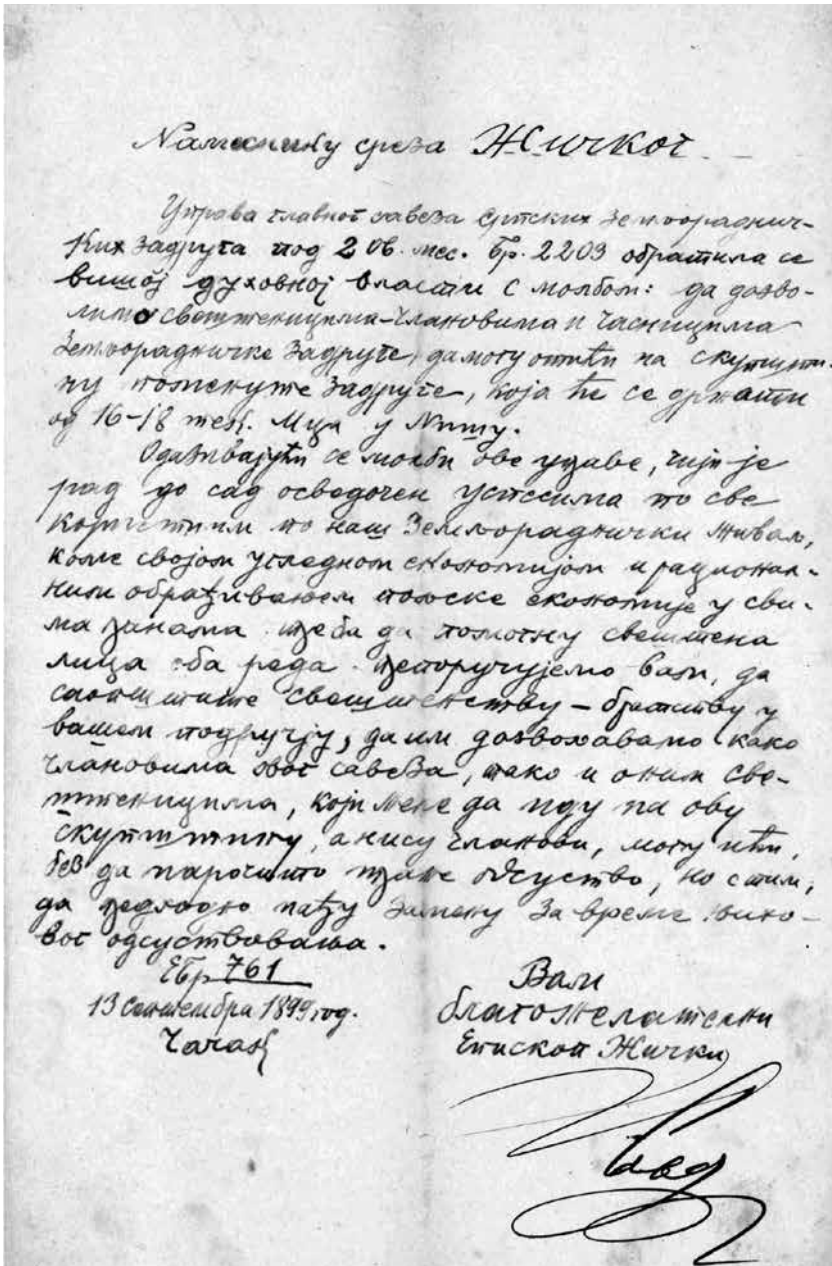 Намеснику среза Жичког
Управа главног савеза српских земљораднич-
ких задруга под 2 ов. мес. бр. 2203 обратила се
вишој духовној власти с молбом: да дозво-
лимо свештеницима-члановима и часницима
Земљорадничке задруге, да могу отићи на скупшти-
ну поменуте задруге, која ће се држати
од 16-18 тек. М-ца у Нишу.
Одазивајући се молби ове управе, чији је
рад до сад осведочен успесима по све
корисним по наш Земљораднички
коме својом угледном економијом и рационал-
ним обрађивањем пољске економије у сви-
ма гранама треба да помогну свештена
лица оба реда препоручујемо вам, да
саопштите свештенству – братству у
вашем подручју, да им дозвољавамо како
члановима овог савеза, тако и оним све-
штеницима, који желе да иду на ову
скупштину, а нису чланови, могу ићи,
без да нарочито траже одсуство, но с тим,
да предходно нађу замену за време њихо-
вог одсуствовања.
ЕБр 761
13 Септембра 1899 год.
Чачак
Вам
благожелатељни
Епископ Жички
Сава